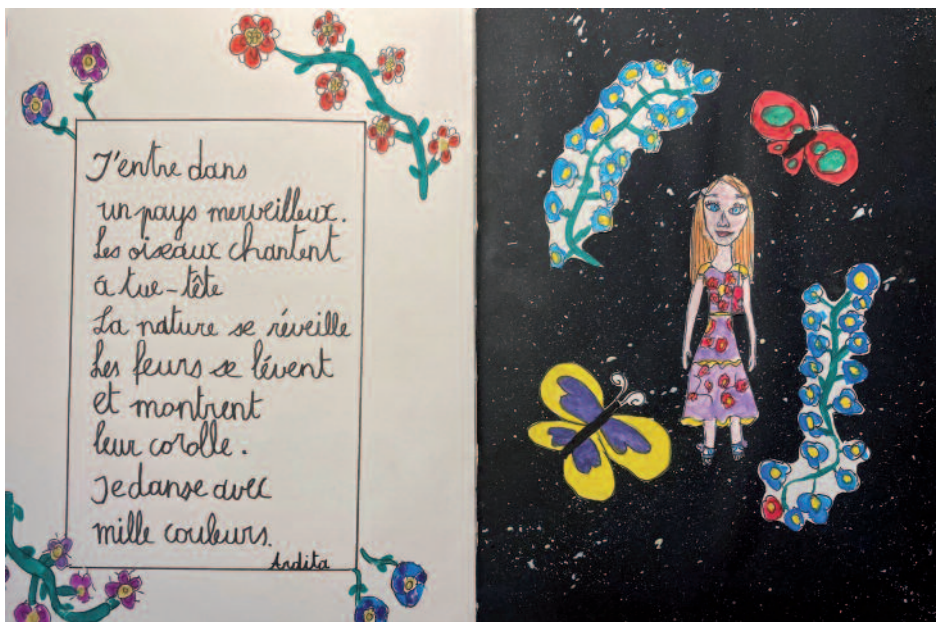 J'entre dans
un pays merveilleux.
Les oiseaux chantent
à tue-tête
La nature se réveille
Les feurs se lévent
et montrent
leur corolle.
Je danse avec
mille couleurs.
Ardita